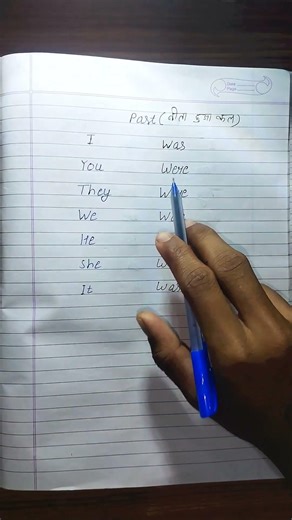 Past (बीता हुआ कल)
I was
You were
They were
We
He
She
It was